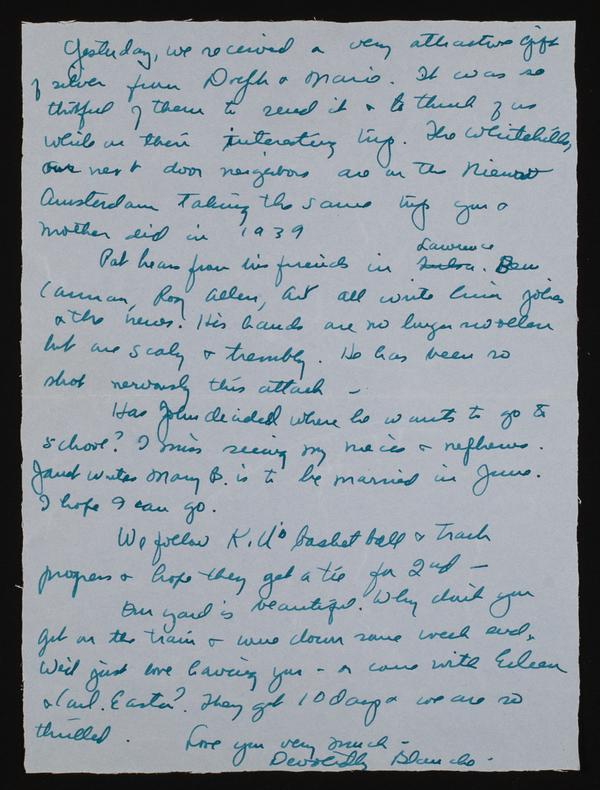 Yesterday, we received a very attractive gift
of silver from & Mario. It was so
thotful of them to send it & to think of us
while on their interesting trip. The Whitehills,
our next door neighbors are on the Nieuw
Amsterdam taking the same trip you &
mother did in 1939
Lawrence
Pat hears from his friends in Tulsa. Ben
Roy Allen, Art all write him jokes
& the news. His hands are no longer swollen
but are scaly & trembly. He has been so
shot nervously this attack –
Has John decided where he wants to go to
school? I miss seeing my nieces & nephews.
Janet writes Mary B. is to be married in June.
I hope I can go.
We follow K.U's basketball & track
progress & hope they get a tie for 2nd –
Our yard is beautiful. Why don't you
get on the train & come down some week end.
We'd just love having you – or come with Eileen
& Carl. Easter? They get 10 days & we are so
thrilled.
Love you very much –
Devotedly Blanche.